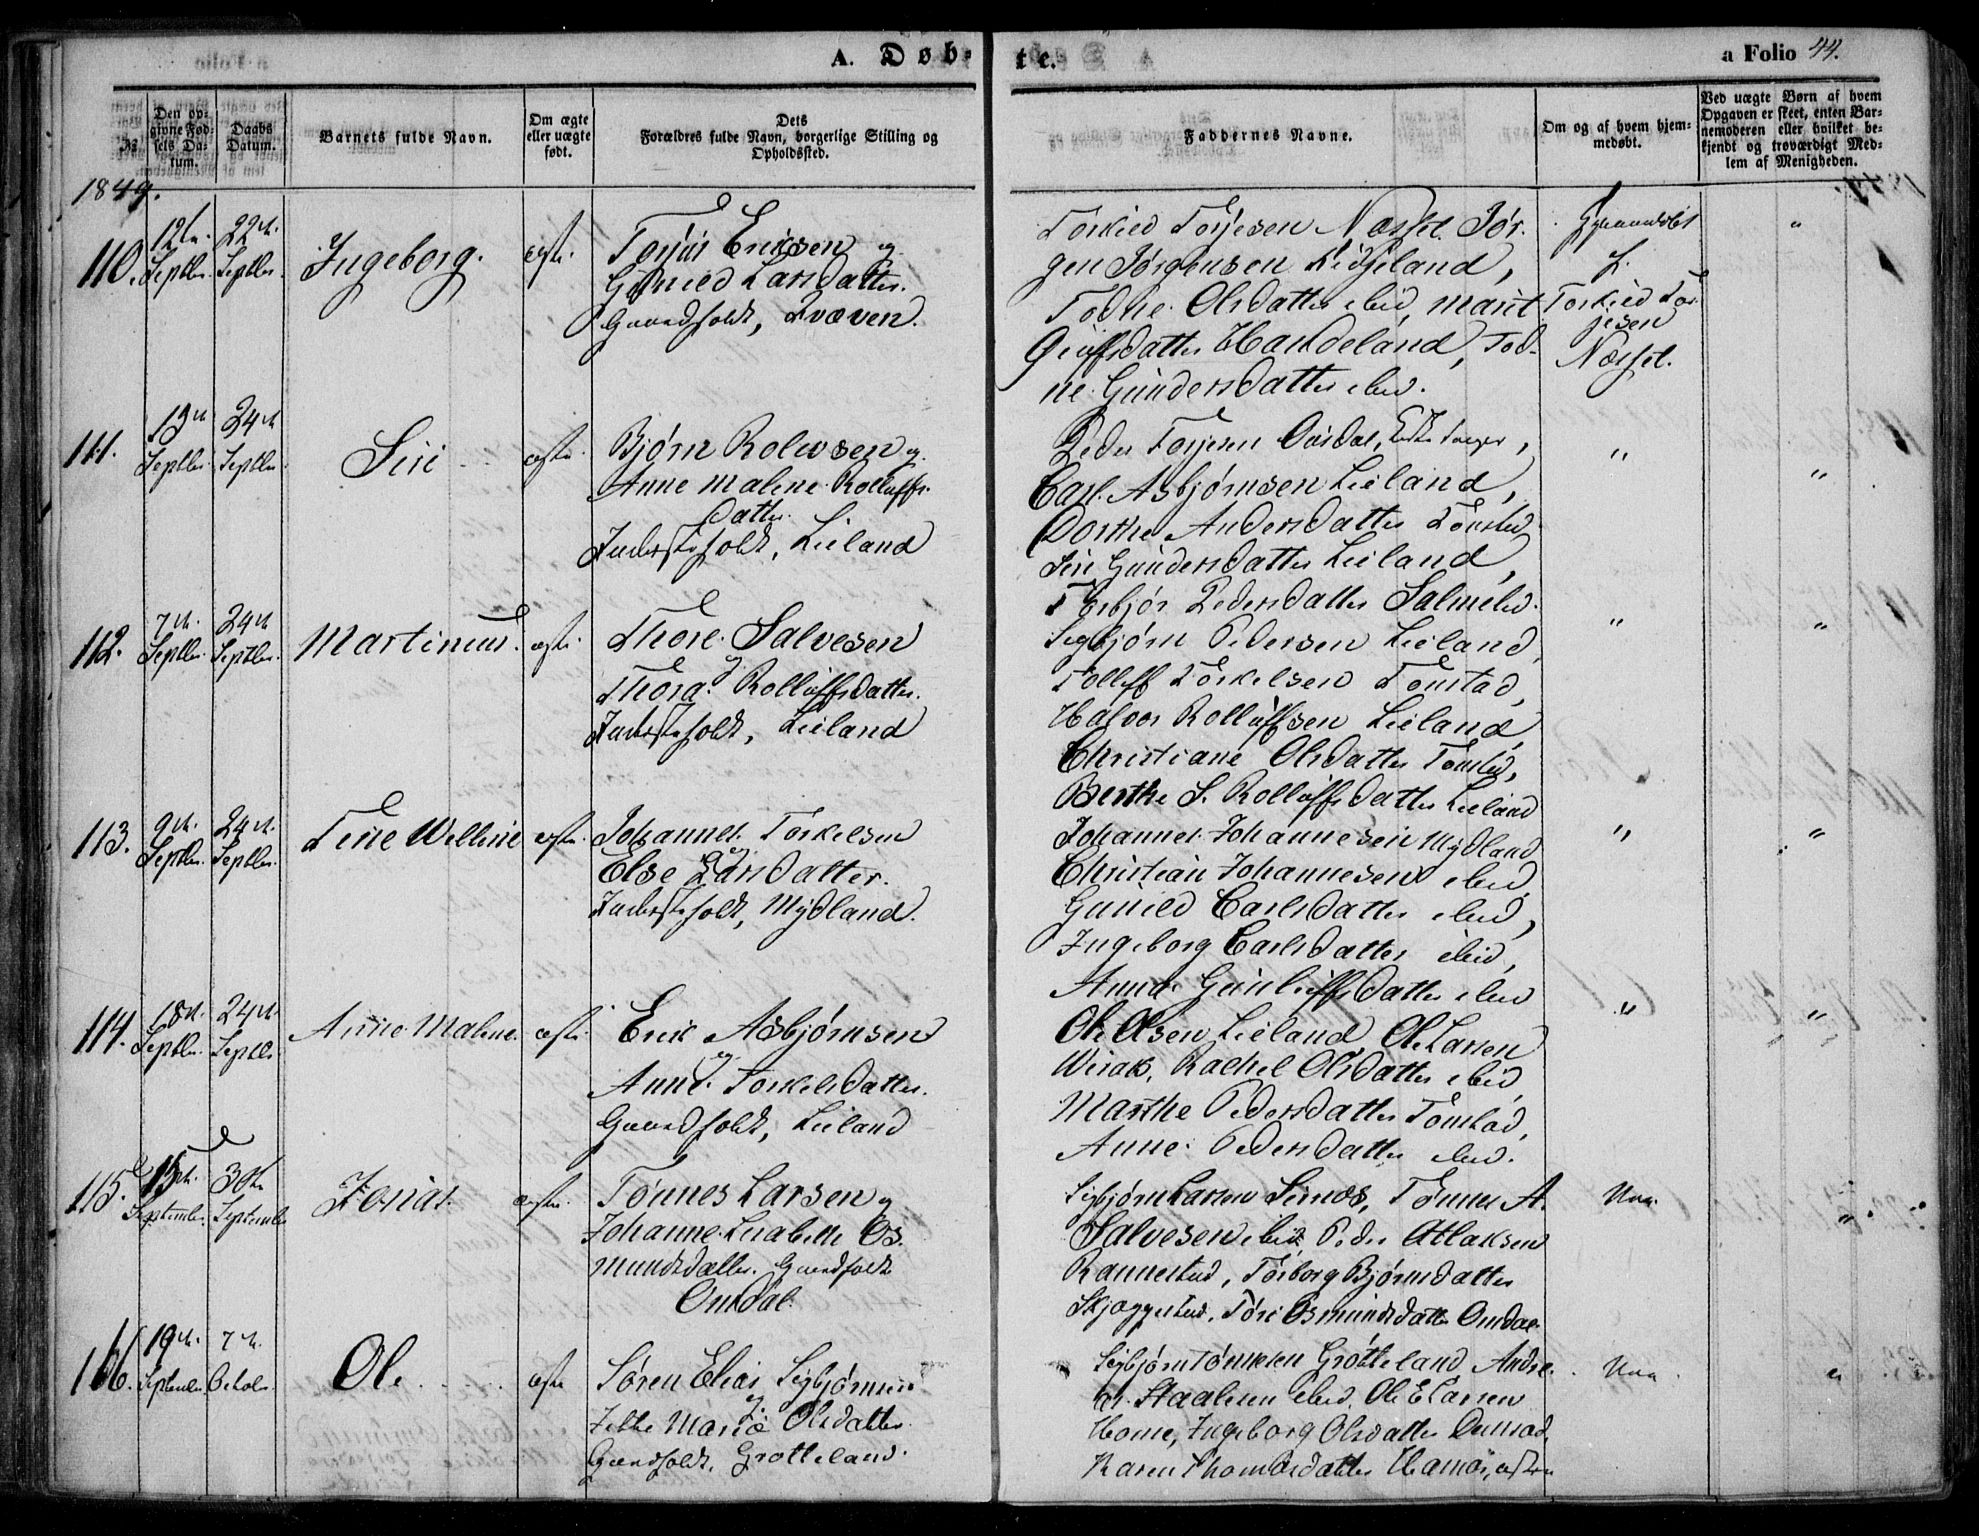 A. Døb-
te.
a Folio 44.
№
Den op-
givne Fød-
sels Da-
tum.
Daabs
Datum.
Barnets fulde Navn.
Om ægte
eller uægte
født.
Dets
Forældres fulde Navn, borgerlige Stilling og
Opholdssted.
Faddernes Navne.
Om og af hvem hjem-
medøbt.
Ved uægte Børn af hvem
Opgaven er skeet, enten Bar-
nemoderen eller hvilket be-
kjendt og troværdigt Med-
lem af Menigheden.
1849.
110.
12te
Septbr.
22de
Septbr.
Ingeborg.
ægte.
Torjus Eriksen og
Gunild Larsdatter.
Gaardfolk, Qvæven.
Torkild Torjesen Næsset. Jør-
gen Jørgensen Lidseland,
Todne Olsdatter ibid, Marit
Datter Haudeland, Tod-
ne Gundersdatter ibid.
Hjemmedøbt
f.
Torkild Tor-
jesen
Næsset.
"
111.
13de
Septbr.
24de
Septbr.
Siri
ægte.
Bjørn Rolvsen og
Anne Malene Rolluffs-
datter.
Inderstefolk, Lieland
Peder Torjesen Ousdal,
Carl Asbjørnsen Lieland,
Dorthe Andersdatter Tonstad,
Siri Gundersdatter Lieland,
Torbjør Pedersdatter Salmelid.
"
"
112.
7de
Septbr.
24de
Septbr.
Martinus.
ægte.
Thore Salvesen
og
Thora Rolluffsdatter.
Inderstefolk, Lieland
Sigbjørn Pedersen Lieland,
Tolleff Torkelsen Tonstad,
Halvor Rolluffsen Lieland,
Christiane Olsdatter Tonstad,
Berthe S. Rolluffsdatter Lieland
"
"
113.
9de
Septbr.
24de
Septbr.
Tine Welline
ægte.
Johannes Torkelsen
og
Else Larsdatter.
Inderstefolk, Mydland.
Johannes Johannesen Mydland,
Christian Johannesen ibid,
Gunild Carlsdatter ibid,
Ingeborg Carlsdatter ibid,
Anna Gunleiffsdatter ibid
"
"
114.
18de
Septbr.
24de
Septbr.
Anne Malene.
ægte.
Erik Asbjørnsen
og
Anne Torkelsdatter.
Gaardfolk, Lieland
Ole Olsen Lieland, Ole Larsen
Wirak, Rachel Olsdatter ibid,
Marthe Pedersdatter Tonstad,
Anne Pedersdatter ibid.
"
"
115.
15de
September
30te
September
Jonas.
ægte.
Tønnes Larsen og
Johanne Lisabeth Os-
mundsdatter. Gaardfolk
Omdal.
Sigbjørn Larsen Sirnes, Tønnes A.
Salvesen ibid, Peder Atlaksen
Rannestad, Torborg Bjørnsdatter
Skjæggestad, Tore Osmundsdatter Omdal.
Nei.
"
116.
19de
September
7de
Octobr.
Ole
ægte
Søren Elias Sigbjørnsen
og
Maria Olsdatter.
Gaardfolk, Grotteland.
Sigbjørn Tønnesen Grotteland, Andre-
as Staalesen ibid, Ole E Larsen
Home, Ingeborg Olsdatter
Karen Thomasdatter
Nei.
"